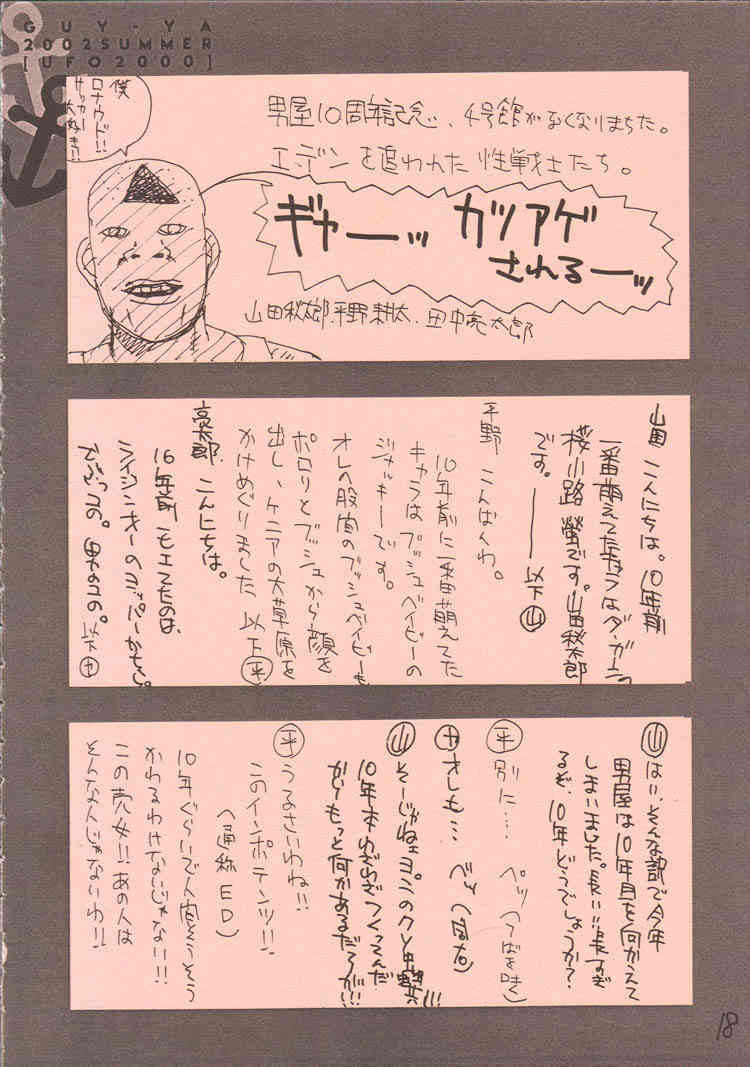 GUY-YA
2002SUMMER
[UFO2000]
僕
ロナウド!!
サッカー
大好き!!
男屋10周年記念、4号館がなくなりまちた。
エデンを追われた性戦士たち。
ギャーーッ カツアゲ
されるーーッ
山田秋太郎.平野耕太.田中亮太郎
山田 こんにちは。10年前
一番萌えてたキャラはダ・ガーンの
桜小路螢です。山田秋太郎
です。――以下㊤山
平野 こんばくわ。
10年前に一番萌えてた
キャラはブッシュベイビーの
ジャッキーです。
オレの股間のブッシュベイビーも
ポロリとブッシュから顔を
出しケニアの大草原を
かけめぐりました 以下平
亮太郎 こんにちは。
10年前モエてたのは、
ライジンオーのヨッパーかなぁ。
でぶっつの。男のコの。以下
山 はい、そんな訳で今年
男屋は10年目を向かえて
しまいました。長い!!長すぎ
るぞ、10年どうでしょうか?
平 別に…. ペッ(つばを吐く)
オレも… ペッ(同右)
山 そーじゃねェヨこのクソ虫共!!!
10年本わざわざつくってんだ
からもっと何かあるだろが!!!
平 うるさいわね!!
このインポテンツ!!
(通称ED)
10年ぐらいで人間そうそう
かわるわけないじゃない!!
この売女!!あの人は
そんな人じゃないわ!!
18